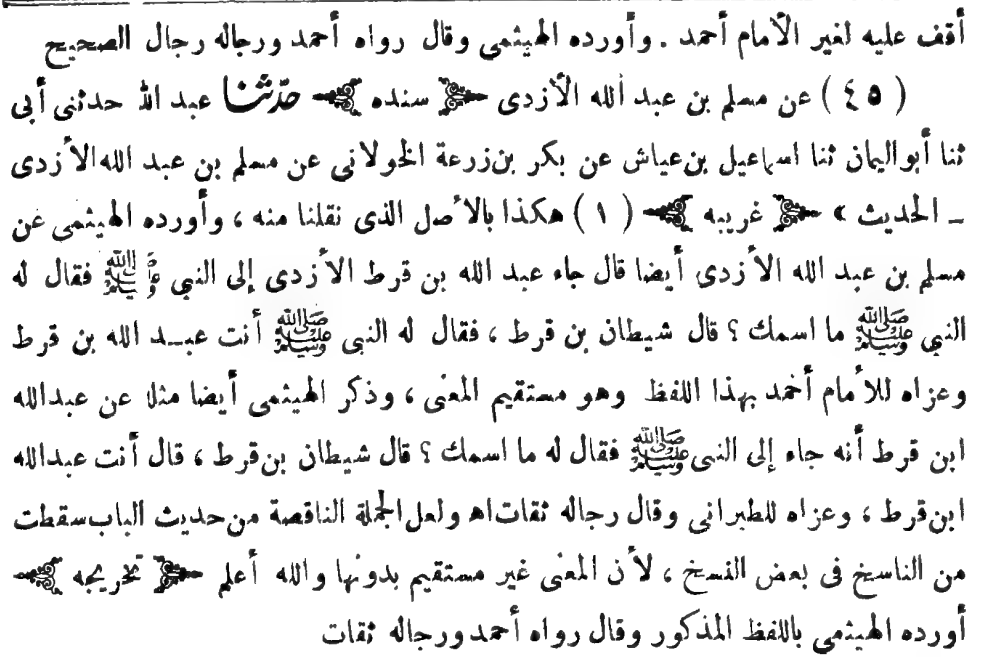 أقف عليه لغير الأمام أحمد . وأورده الهيثمي وقال رواه أحمد ورجاله رجال الصحيح
( ٤٥ ) عن مسلم بن عبد الله الأزدى ﴿ سنده ﴾ حدّثنا عبد الله حدثنى أبى
ثنا أبو اليمان ثنا اسماعيل بن عياش عن بكر بن زرعة الخولانى عن مسلم بن عبد الله الأزدى
ــ الحديث » ﴿ غريبه ﴾ ( ١ ) هكذا بالأصل الذى نقلنا منه ، وأورده الهيثمى عن
مسلم بن عبد الله الأزدى أيضا قال جاء عبد الله بن قرط الأزدى إلى النبي ﷺ فقال له
النبي ﷺ ما اسمك ؟ قال شيطان بن قرط ، فقال له النبى ﷺ أنت عبــد الله بن قرط
وعزاه للأمام أحمد بهذا اللفظ وهو مستقيم المعنى ، وذكر الهيثمى أيضا مثله عن عبدالله
ابن قرط أنه جاء إلى النبى ﷺ فقال له ما اسمك ؟ قال شيطان بن قرط ، قال أنت عبدالله
ابن قرط ، وعزاه للطبرانى وقال رجاله ثقات اهـ ولعل الجملة الناقصة من حديث الباب سقطت
من الناسخ فى بعض النسخ ، لأن المعنى غير مستقيم بدونها والله أعلم ﴿ تخريجه ﴾
أورده الهيثمي باللفظ المذكور وقال رواه أحمد ورجاله ثقات